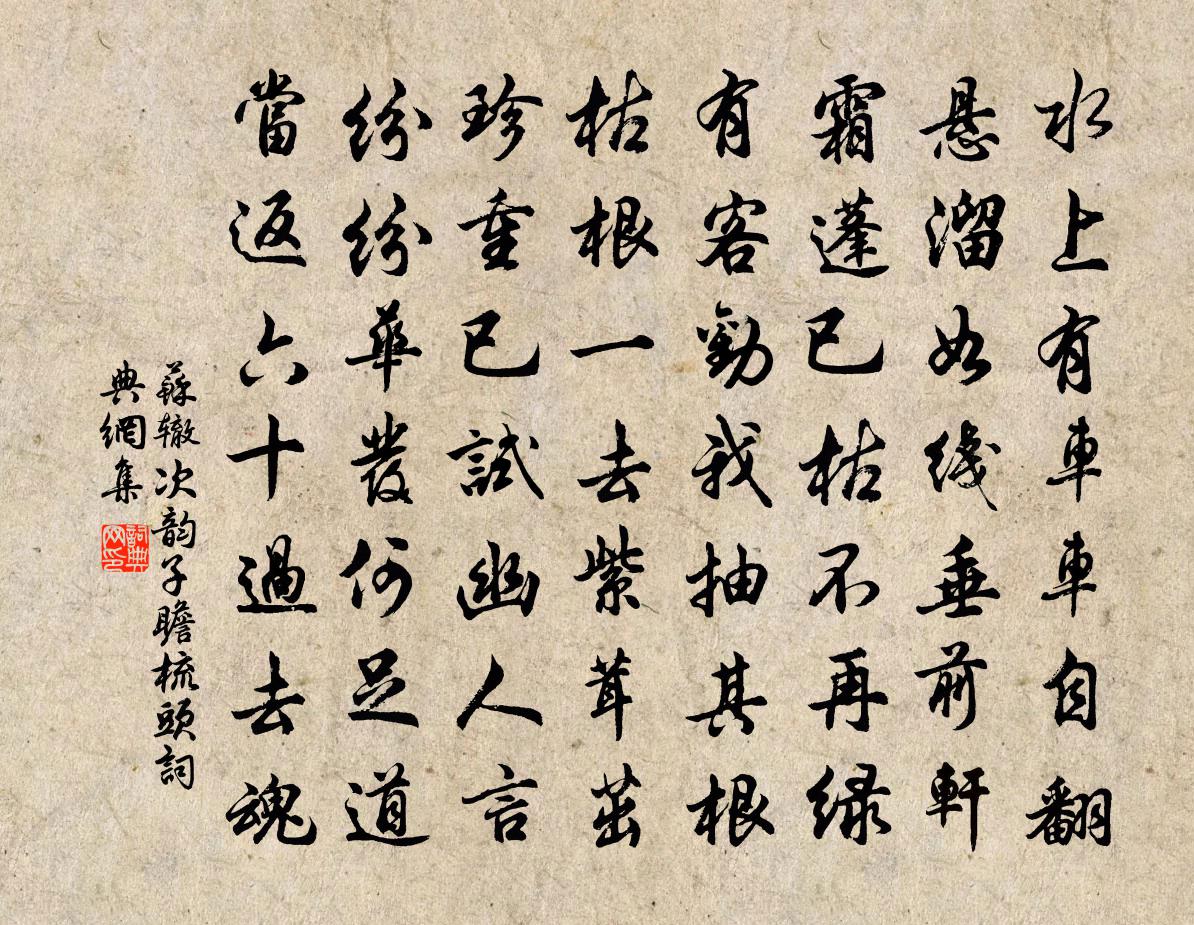 水上有車車自翻
悬溜如线垂前軒
霜蓬已枯不再绿
有客勸我抽其根
枯根一去紫茸茁
珍重已試幽人言
纷纷華發何足道
當返六十過去魂
蘇辙次韵子瞻梳頭詞
典網集
詞典
网印